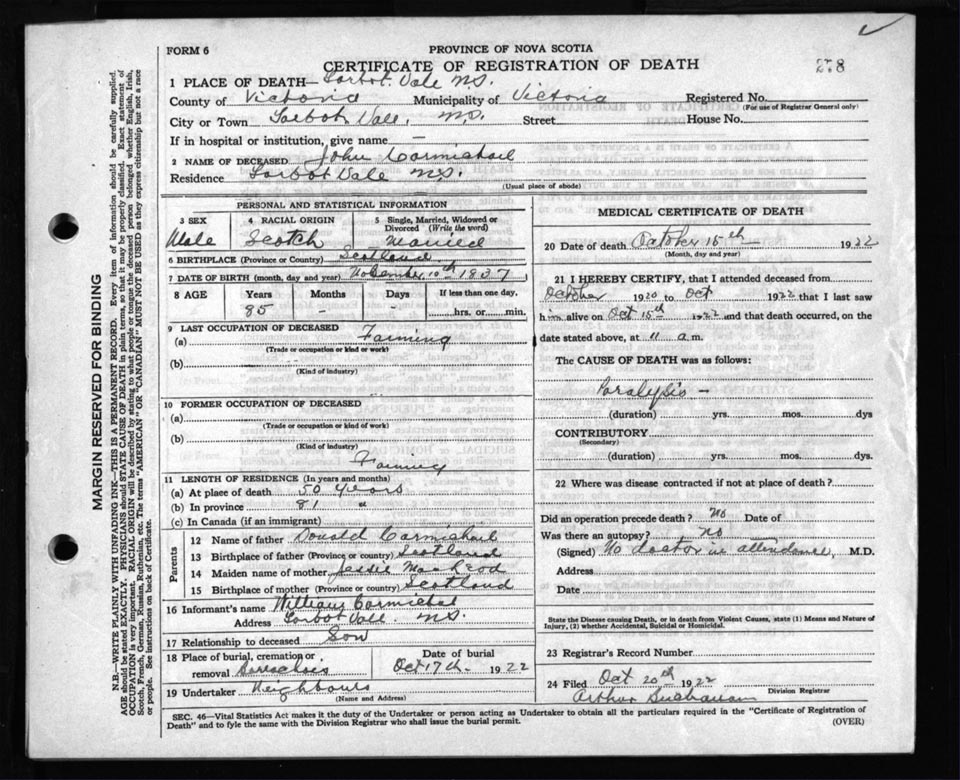 FORM 6
PROVINCE OF NOVA SCOTIA
CERTIFICATE OF REGISTRATION OF DEATH
278
1 PLACE OF DEATH— Tarbot Vale N.S.
County of Victoria Municipality of Victoria Registered No.
(For use of Registrar General only)
City or Town Tarbot Vale, N.S. Street House No.
If in hospital or institution, give name —
2 NAME OF DECEASED John Carmichael
Residence Tarbot Vale N.S.
(Usual place of abode)
PERSONAL AND STATISTICAL INFORMATION
3 SEX 4 RACIAL ORIGIN 5 Single, Married, Widowed or
Divorced (Write the word)
Male Scotch Married
6 BIRTHPLACE (Province or Country) Scotland
7 DATE OF BIRTH (month, day and year) November 10th 1837
8 AGE Years Months Days If less than one day.
85 - - hrs. or min.
9 LAST OCCUPATION OF DECEASED
(a) Farming
(Trade or occupation or kind or work)
(b)
(Kind of industry)
10 FORMER OCCUPATION OF DECEASED
(a)
(Trade or occupation or kind of work)
(b)
(Kind of industry)
Farming
11 LENGTH OF RESIDENCE (In years and months)
(a) At place of death 50 years
(b) In province 81 "
(c) In Canada (if an immigrant)
Parents
12 Name of father Donald Carmichael
13 Birthplace of father (Province or country) Scotland
14 Maiden name of mother Jessie MacLeod
15 Birthplace of mother (Province or country) Scotland
16 Informant's name William Carmichel
Address Tarbot Vale. N.S.
17 Relationship to deceased Son
18 Place of burial, cremation or
removal
Date of burial
Oct 17th 1922
19 Undertaker Neighbours
(Name and Address)
MEDICAL CERTIFICATE OF DEATH
20 Date of death October 15th 1922
(Month, day and year)
21 I HEREBY CERTIFY, that I attended deceased from
October 1920 to Oct 1922 that I last saw
him alive on Oct 15th 1922 and that death occurred, on the
date stated above, at 11 a.m.
The CAUSE OF DEATH was as follows:
Paralysis -
(duration) yrs. mos. dys
CONTRIBUTORY
(Secondary)
(duration) yrs. mos. dys.
22 Where was disease contracted if not at place of death?
Did an operation precede death? No Date of
Was there an autopsy? No
(Signed) No doctor in attendance, M.D.
Address
Date
State the Disease causing Death, or in death from Violent Causes, state (1) Means and Nature of
Injury, (2) whether Accidental, Suicidal or Homicidal.
23 Registrar's Record Number
24 Filed Oct 20th 1922
Arthur Buchanan Division Registrar
SEC. 46—Vital Statistics Act makes it the duty of the Undertaker or person acting as Undertaker to obtain all the particulars required in the "Certificate of Registration of
Death" and to fyle the same with the Division Registrar who shall issue the burial permit.
(OVER)
MARGIN RESERVED FOR BINDING
N.B.—WRITE PLAINLY WITH UNFADING INK—THIS IS A PERMANENT RECORD. Every item of information should be carefully supplied.
AGE should be stated EXACTLY. PHYSICIANS should STATE CAUSE OF DEATH in plain terms, so that it may be properly classified. Exact statement of
OCCUPATION is very important. RACIAL ORIGIN will be described by stating to what people or tongue the deceased person belonged whether English, Irish,
Scotch, French, German, Russian, Ruthenian, etc. The terms "AMERICAN" OR "CANADIAN" MUST NOT BE USED as they express citizenship but not a race
or people. See instructions on back of Certificate.